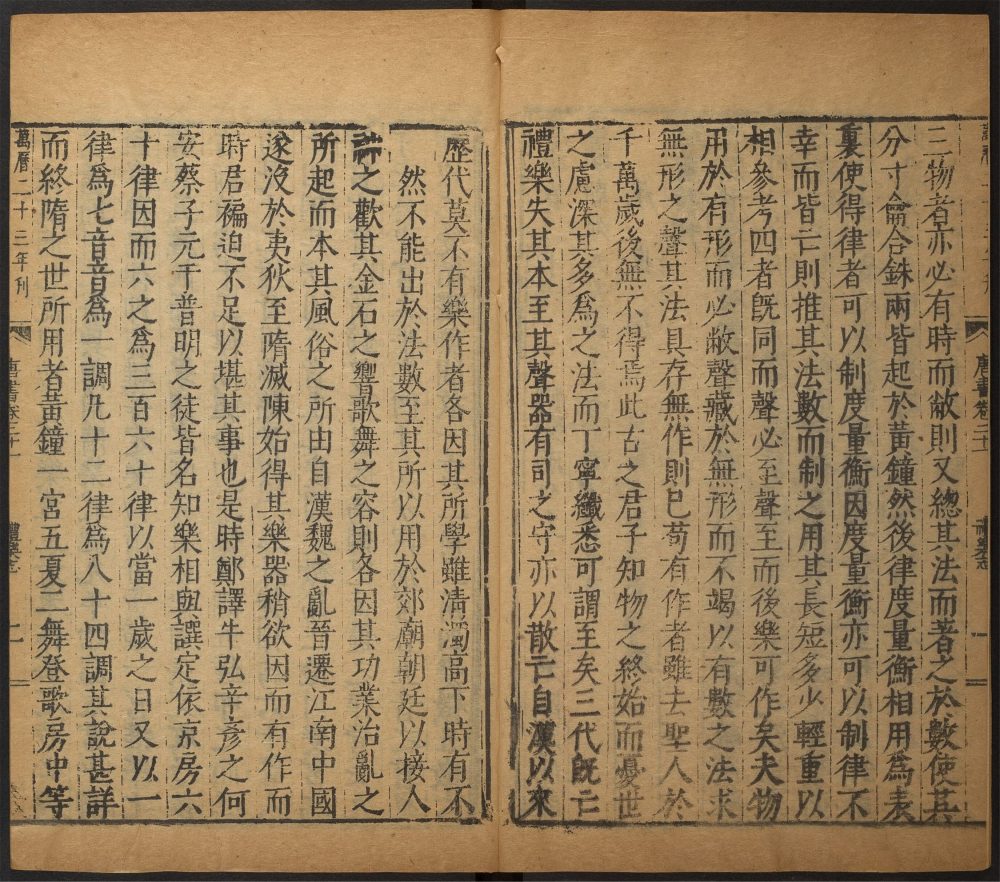 三物者亦必有時而敝則又總其法而著之於數使其
分寸龠合銖兩皆起於黃鐘然後律度量衡相用爲表
裏使得律者可以制度量衡因度量衡亦可以制律不
幸而皆亡則推其法數而制之用其長短多少輕重以
相參考四者旣同而聲必至聲至而後樂可作矣夫物
用於有形而必敝聲藏於無形而不竭以有數之法求
無形之聲其法具存無作則已苟有作者雖去聖人於
千萬歲後無不得焉此古之君子知物之終始而憂世
之慮深其多爲之法而丁寧纖悉可謂至矣三代旣亡
禮樂失其本至其聲器有司之守亦以散亡自漢以來
歷代莫不有樂作者各因其所學雖淸濁高下時有不
然不能出於法數至其所以用於郊廟朝廷以接人
神之歡其金石之響歌舞之容則各因其功業治亂之
所起而本其風俗之所由自漢魏之亂晉遷江南中國
遂沒於夷狄至隋滅陳始得其樂器稍欲因而有作而
時君褊迫不足以堪其事也是時鄭譯牛弘辛彥之何
安蔡子元于普明之徒皆名知樂相與譔定依京房六
十律因而六之爲三百六十律以當一歲之日又以一
律爲七音音爲一調凡十二律爲八十四調其說甚詳
而終隋之世所用者黃鐘一宮五夏二舞登歌房中等
萬曆二十三年刊
唐書卷二十一
禮樂志
二